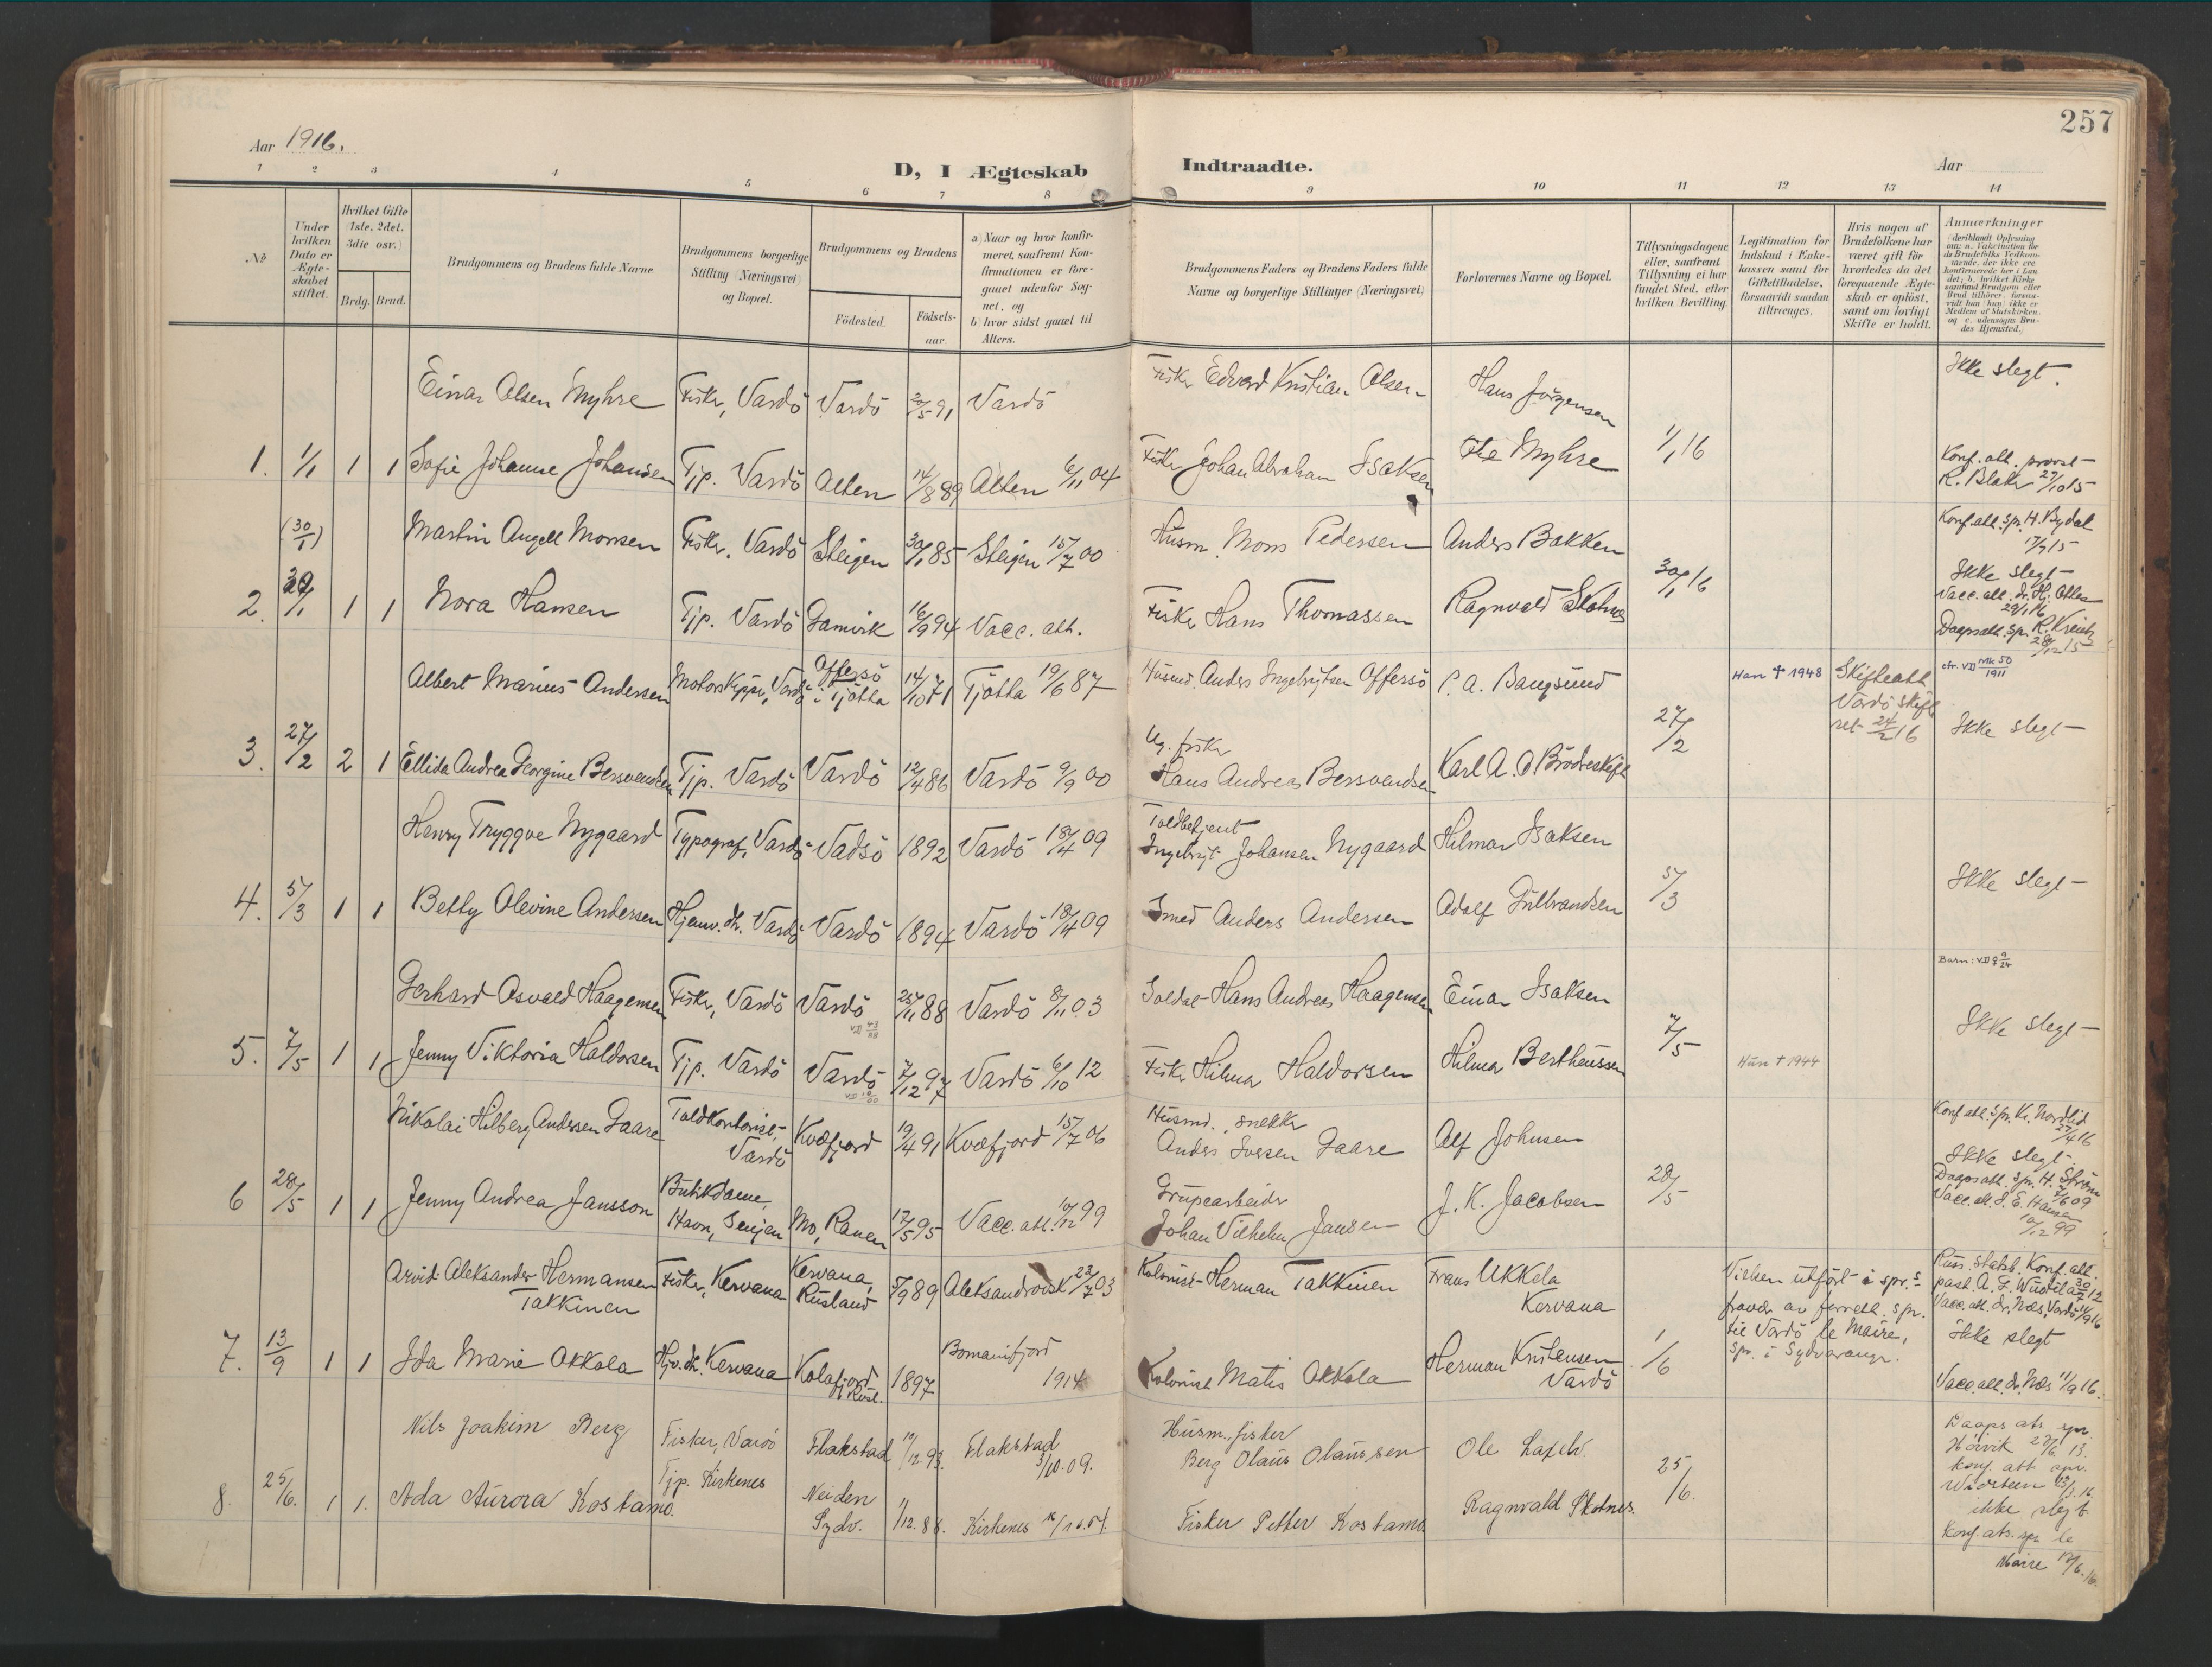 257
Aar 1916.
D, I Ægteskab Indtraadte.
Aar
1 2 3 4 5 6 7 8 9 10 11 12 13 14
No
Under hvilken Dato er Ægteskabet stiftet.
Hvilket Gifte (1ste, 2det, 3die osv.)
Brdg. Brud.
Brudgommens og Brudens fulde Navne
Brudgommens borgerlige Stilling (Næringsvei) og Bopæl.
Brudgommens og Brudens
Födested. Födselsaar.
a) Naar og hvor konfirmeret, saafremt Konfirmationen er foregaaet udenfor Sognet, og
b) hvor sidst gaaet til Alters.
Brudgommens Faders og Brudens Faders fulde Navne og borgerlige Stillinger (Næringsvei)
Forlovernes Navne og Bopæl.
Tillysningsdagene eller, saafremt Tillysning ei har fundet Sted, efter hvilken Bevilling.
Legitimation for Indskud i Enkekassen samt for Giftetilladelse, forsaavidt saadan tiltrænges.
Hvis nogen af Brudefolkene har været gift för hvorledes da det foregaaende Ægteskab er oplöst, samt om lovligt Skifte er holdt.
Anmærkninger
(deriblandt Oplysning om: a. Vakcination for de Brudefolks Vedkommende, der ikke ere konfirmerede her i Landet; b. hvilket Kirkesamfund Brudgom eller Brud tilhörer, forsaavidt han (hun) ikke er Medlem af Statskirken, og c. udensogns Brudes Hjemsted.)
Einar Olsen Myhre Fisker, Vardö Vardö 20/5 91 Vardö Fisker Edvard Kristian Olsen Hans Jörgensen Ikke slegt.
1. 1/1 1 1 Sofie Johanne Johansen Tjp. Vardö Alten 14/8 89 Alten 6/11 04 Fisker Johan Abraham Isaksen Ole Myhre 1/1 16 Konf. att. provst K. Blaker 27/10 15
(30/1) Martin Angell Monsen Fisker, Vardö Steigen 30/1 85 Steigen 15/7 00 Husm. Mons Pedersen Anders Bakken Konf. att. spr. H. Bydal 17/7 15
2. 30/1 1 1 Nora Hansen Tjp. Vardö Gamvik 16/9 94 Vacc. att. Fisker Hans Thomassen Ragnvald Skotnes 30/1 16 Ikke slegt
Vacc. att. dr. Hj. 29/1 16
Daapsatt. spr. K. Kreutz 28/12 15
Albert Marius Andersen Motorskipper, Vardö Offersö i Tjötta 14/10 71 Tjötta 19/6 87 Husmd. Anders Ingebrigtsen Offersö P. A. Bangsund Han † 1948 Skifteatt. Vardö skifteret 24/2 16 cfr. VII Mk 50/1911
3. 27/2 2 1 Ellida Andrea Georgine Bersvendsen Tjp. Vardö Vardö 12/4 86 Vardö 9/9 00 Ug. fisker Hans Andreas Bersvendsen Karl A. O. Brödreskift 27/2 Ikke slegt
Henry Tryggve Nygaard Typograf, Vardö Vadsö 1892 Vardö 18/4 09 Toldbetjent Ingebrigt Johansen Nygaard Hilmar Isaksen
4. 5/3 1 1 Betty Olevine Andersen Hjemv. dt. Vardö Vardö 1894 Vardö 18/4 09 Smed Anders Andersen Adolf Gulbrandsen 5/3 Ikke slegt
Gerhard Osvald Haagensen Fisker, Vardö Vardö 25/11 88 Vardö 8/11 03 Soldat Hans Andreas Haagensen Einar Isaksen Barn: VII 9 9/24
5. 7/5 1 1 Jenny Viktoria Haldorsen Tjp. Vardö Vardö 7/12 97 Vardö 6/10 12 Fisker Hilmar Haldorsen Hilmar Bertheussen 7/5 Hun † 1944 Ikke slegt
Nikolai Hilberg Andersen Gaare Toldkontorist, Vardö Kvæfjord 19/4 91 Kvæfjord 15/7 06 Husmd., snekker Anders Iversen Gaare Alf Johnsen Konf. att. spr. Kr. Nordlid 27/4 16
6 28/5 1 1 Jenny Andrea Jansson Butikdame, Havn, Senjen Mo, Ranen 17/5 95 Vacc. att. 10/12 99 Grubearbeider Johan Vilhelm Jansen J. K. Jacobsen 28/5 Ikke slegt
Daapsatt. spr. H. Ström 7/6 09
Vacc. att. J. E. Hansen 10/12 99
Arvid Aleksander Hermansen Takkinen Fisker, Kervana Kervana, Rusland 5/9 89 Aleksandrovsk 23/7 03 Kolonist Herman Takkinen Frans Ukkola Kervana Vielsen utført i spr.s fravær av forrett. spr. til Vardö le Maire, spr. i Sydvaranger. Russ. statsb. Konf. att. past. A. L. 30/7 12
Vacc. att. dr. Næs, Vardö 11/9 16
7. 13/9 1 1 Ida Marie Okkola Hjv. dt. Kervana Kolafjord Rusl. 1897 Bomanifjord 1914 Kolonist Matis Okkola Herman Kristensen Vardö 1/6 ikke slegt
Vacc. att. dr. Næs 11/9 16.
Nils Joakim Berg Fisker, Vardö Flakstad 10/12 93. Flakstad 3/10. 09. Husm., fisker Berg Olaus Olaussen Ole Daaps ats. spr. Hörvik 27/6 13.
8. 25/6. 1 1. Ada Aurora Kostamo. Tjp. Kirkenes Neiden Sydv. 1/12. 88. Kirkenes 16/10. 04. Fisker Petter Kostamo Ragnvald Skotnes. 25/6. konf. att. spr. 16.
ikke slegt.
Konf. ats. spr. le Maire 12/6. 16.